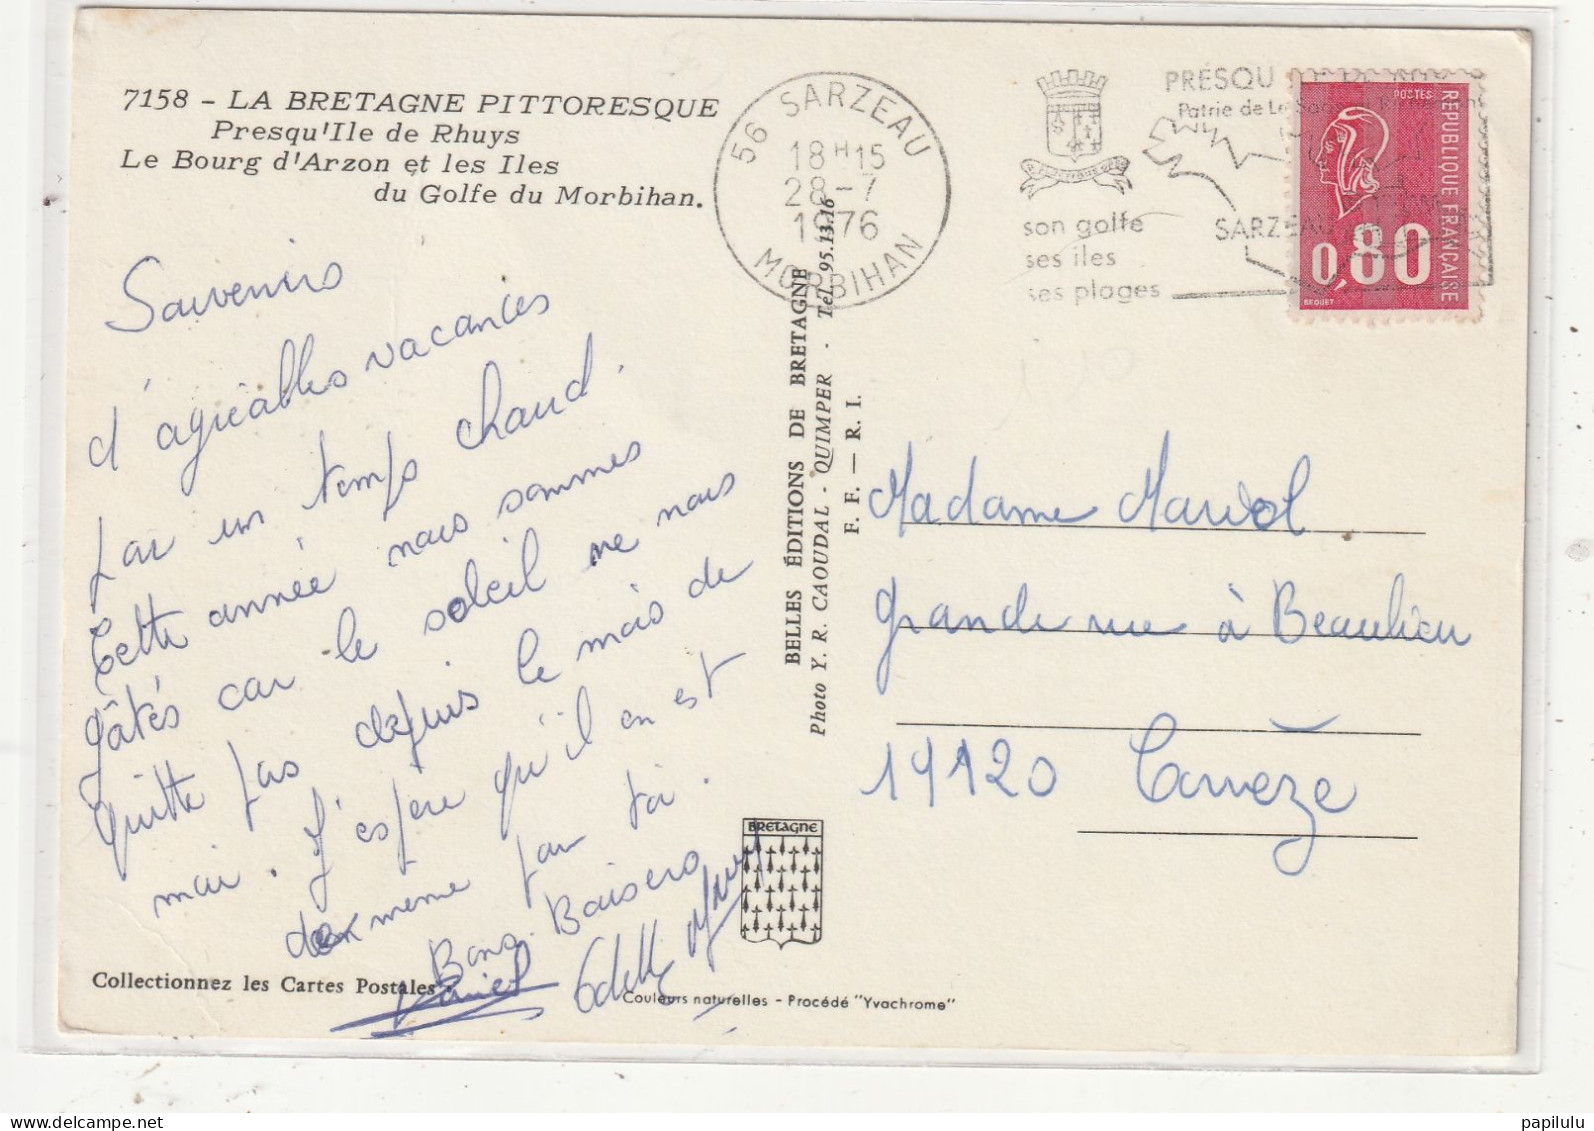 7158 - LA BRETAGNE PITTORESQUE
Presqu'Ile de Rhuys
Le Bourg d'Arzon et les Iles
du Golfe du Morbihan.
Souvenirs
d'agréables vacances
par un temps chaud.
Cette année nous sommes
gâtés car le soleil ne nous
quitte pas depuis le mois de
mai. J'espère qu'il en est
de même par toi.
Bons Baisers
Daniel Odette
Collectionnez les Cartes Postales
Couleurs naturelles - Procédé "Yvachrome"
BRETAGNE
BELLES ÉDITIONS DE BRETAGNE
Photo Y. R. CAOUDAL - QUIMPER - Tél. 95.13.16
F. F. — R. I.
56 SARZEAU
18H15
28-7
1976
MORBIHAN
PRESQU
Patrie de Le Sage
son golfe
ses iles
ses plages
SARZEAU
POSTES
RÉPUBLIQUE FRANÇAISE
0,80
BEQUET
Madame Mariol
grande rue à Beaulieu
19120 Corrèze
papilulu